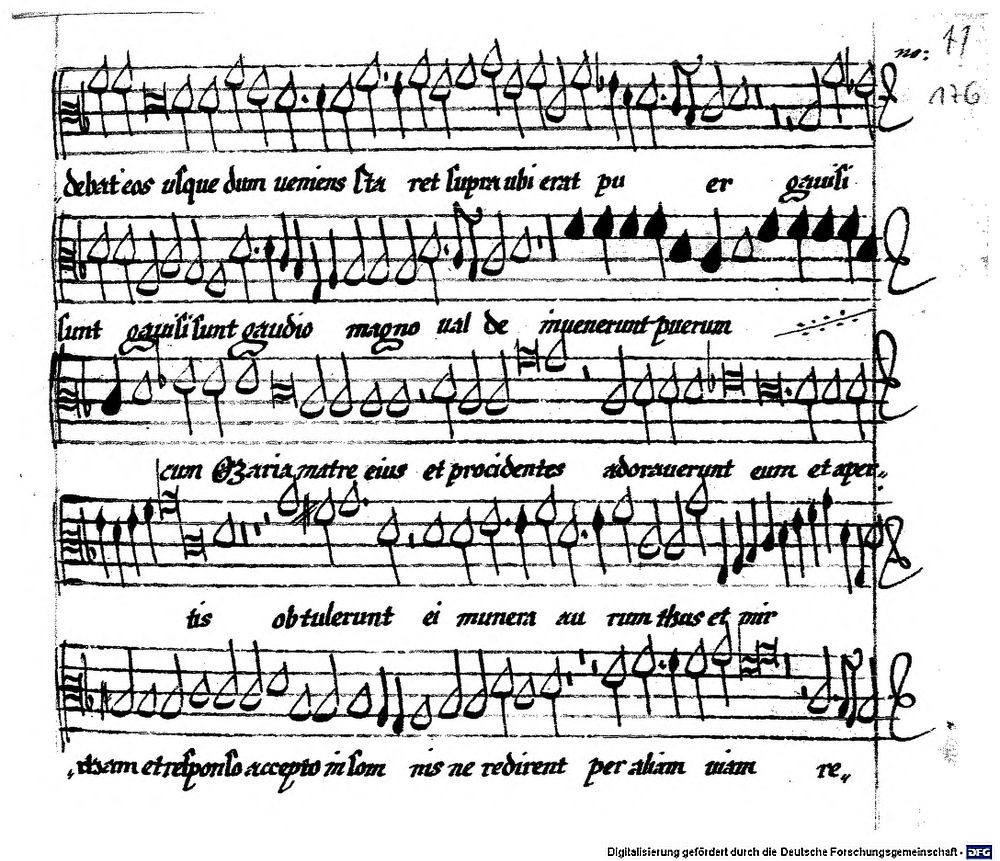 no: 11
176
debat eos usque dum veniens sta ret supra ubi erat pu er gavisi
sunt gavisi sunt gaudio magno val de invenerunt puerum
cum Maria matre eius et procidentes adoraverunt eum et aper„
tis obtulerunt ei munera au rum thus et mir
et responso accepto in som nis ne redirent per aliam viam re„
Digitalisierung gefördert durch die Deutsche Forschungsgemeinschaft - DFG